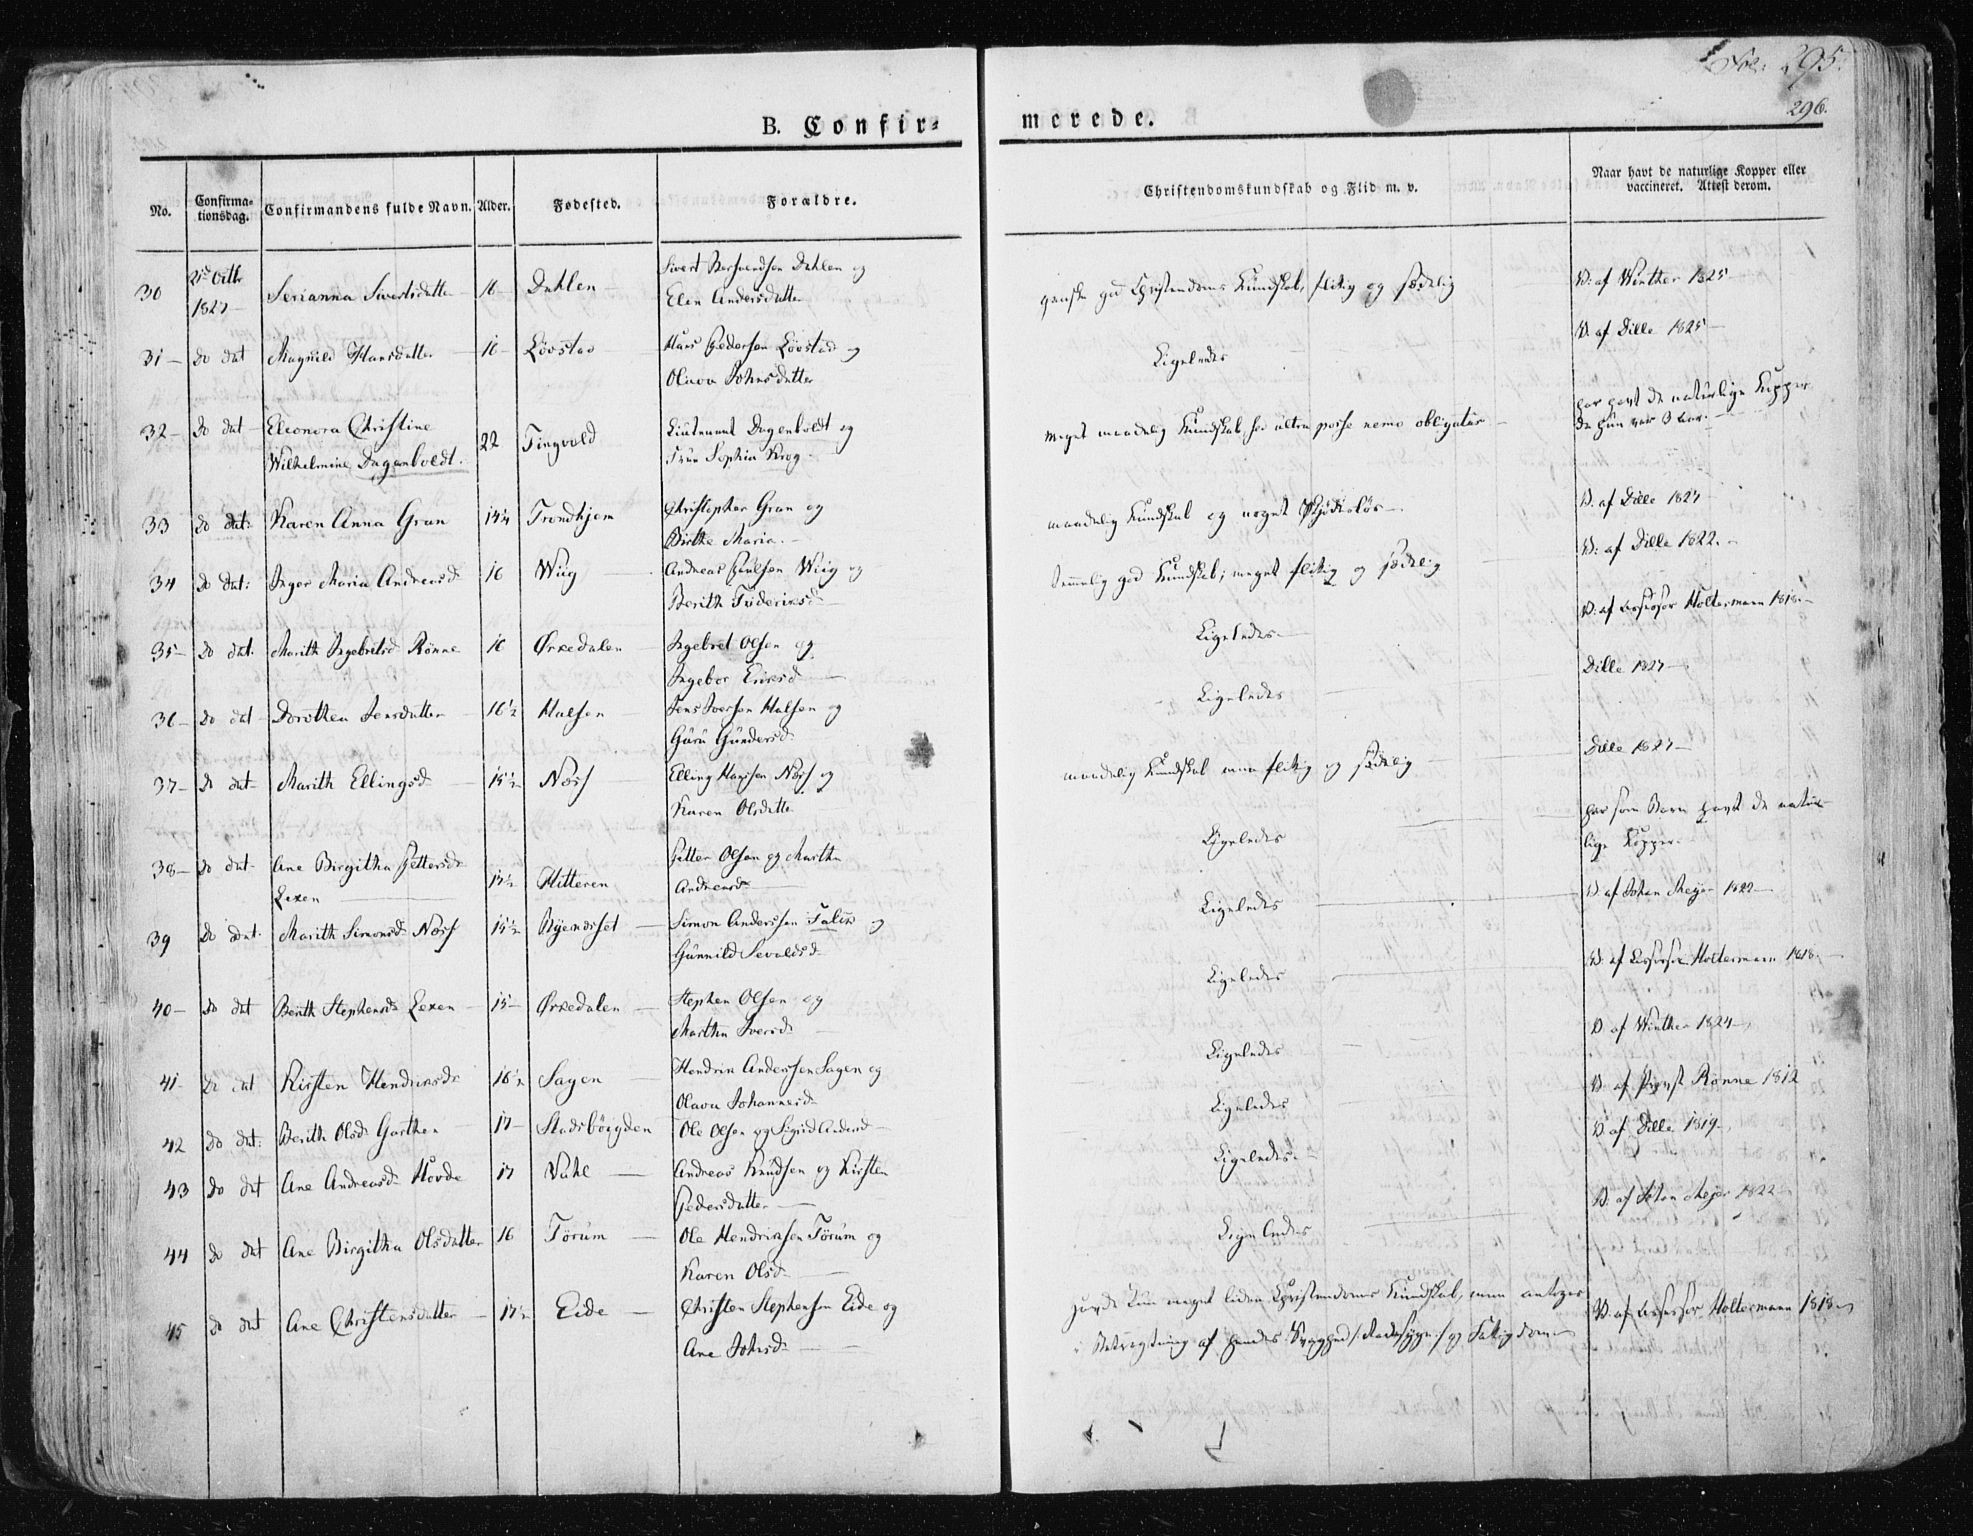 Fol: 295.
296.
B. Confir-
merede.
No.
Confirma-
tionsdag.
Confirmandens fulde Navn.
Alder.
Fødested.
Forældre.
Christendomskundskab og Flid m. v.
Naar havt de naturlige Kopper eller
vaccineret. Attest derom.
30 1827 Serianna Sivertsdatter 16 Dahlen Sivert Dahlen og
Elen Andersdatter
ganske god Christendoms Kundskab, flitig og sædelig
V: af Winther 1825
31 do dat Magnild Hansdatter 16 Lövstad Hans Pedersen Lövstad og
Olava Johnsdatter
Ligeledes
V. af Dille 1825
32 do dat Eleonora Christine
Wilhelmine Dagenboldt. 22 Tingvold Lieutnant Dagenboldt og
Frue Sophia Krog
meget maadelig Kundskab, sed ultra posse nemo obligatur
har havt de naturlige Kopper
da hun var 3 aar.
33 do dat: Karen Anna Gran 14¼ Trondhjem Christopher Gran og
Birthe Maria.
maadelig Kundskab og noget
V. af Dille 1827
34 do dat: Inger Maria Andreasd 16 Wiig Andreas Wiig og
Berith Frideriksd
temmelig god Kundskab; meget flitig og sædelig
V: af Dille 1822.
35 do dat. Marith Ingebretsd Rönne 16 Ørkedalen Ingebret Olsen og
Ingebor Eriksd
Ligeledes
V: af Assessor Holtermann 1818.
36 do dat Dorothea Jensdatter 16½ Halsen Jens Iversen Halsen og
Guru Gundersd
Ligeledes
Dille 1827
37 do dat Marith Ellingsd 15½ Næss Elling Hansen Næss og
Karen Olsdatter
maadelig Kundskab men flitig og sædelig
Dille 1827
38 do dat Ane Birgitha Pettersd
Lexen 15½ Hitteren Petter Olsen og Martha
Andreasd
Ligeledes
har som Barn havt de natur-
lige Kopper.
39 do dat. Marith Simonsd Næss 15½ Simon Andersen og
Gunnild Sevaldsd
Ligeledes
V af Johan Mejer 1822
40 do dat Berith Stephensd Lexen 15 Ørkedalen Stephen Olsen og
Martha Iversd
Ligeledes
V. af Assessor Holtermann 1818.
41 do dat Kirsten Hendriksd 16½ Sagen Hendrik Andersen Sagen og
Olava Johannesd
Ligeledes
V af Winther 1824
42 do dat: Berith Olsd Garthen 17 Stadsböygden Ole Olsen og Sigrid Andersd
Ligeledes
V: af Provst Rönne 1812
43 do dat Ane Andreasd Hovde 17 Andreas Knudsen og Kirsten
Pedersdatter
Ligeledes
V. af Dille 1819
44 do dat Ane Birgitha Olsdatter 16 Tørum Ole Hendriksen Tørum og
Karen Olsd
Ligeledes
V. af Johan Mejer 1822
45 do dat Ane Christensdatter 17½ Eide Christen Stephensen Eide og
Ane Johnsd
havde kun meget liden Christendoms Kundskab, men antoges
i Betragtning af hendes Svaghed og Fattigdom
V. af Assessor Holtermann 1818